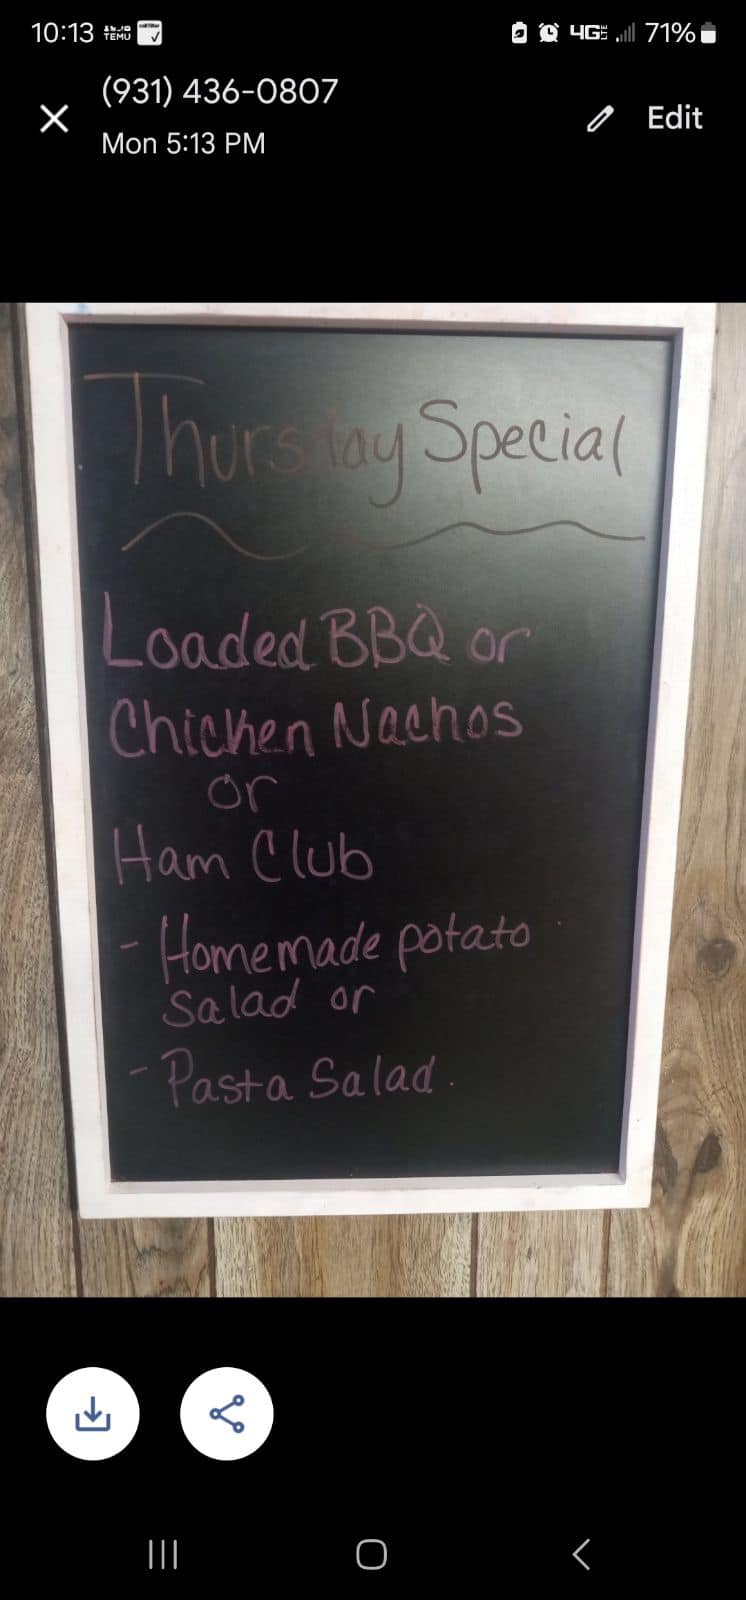 10:13 TEMU 4GE LTE 71%
(931) 436-0807
Mon 5:13 PM
Edit
Thursday Special
Loaded BBQ or
Chicken Nachos
or
Ham Club
- Homemade potato
salad or
- Pasta Salad.